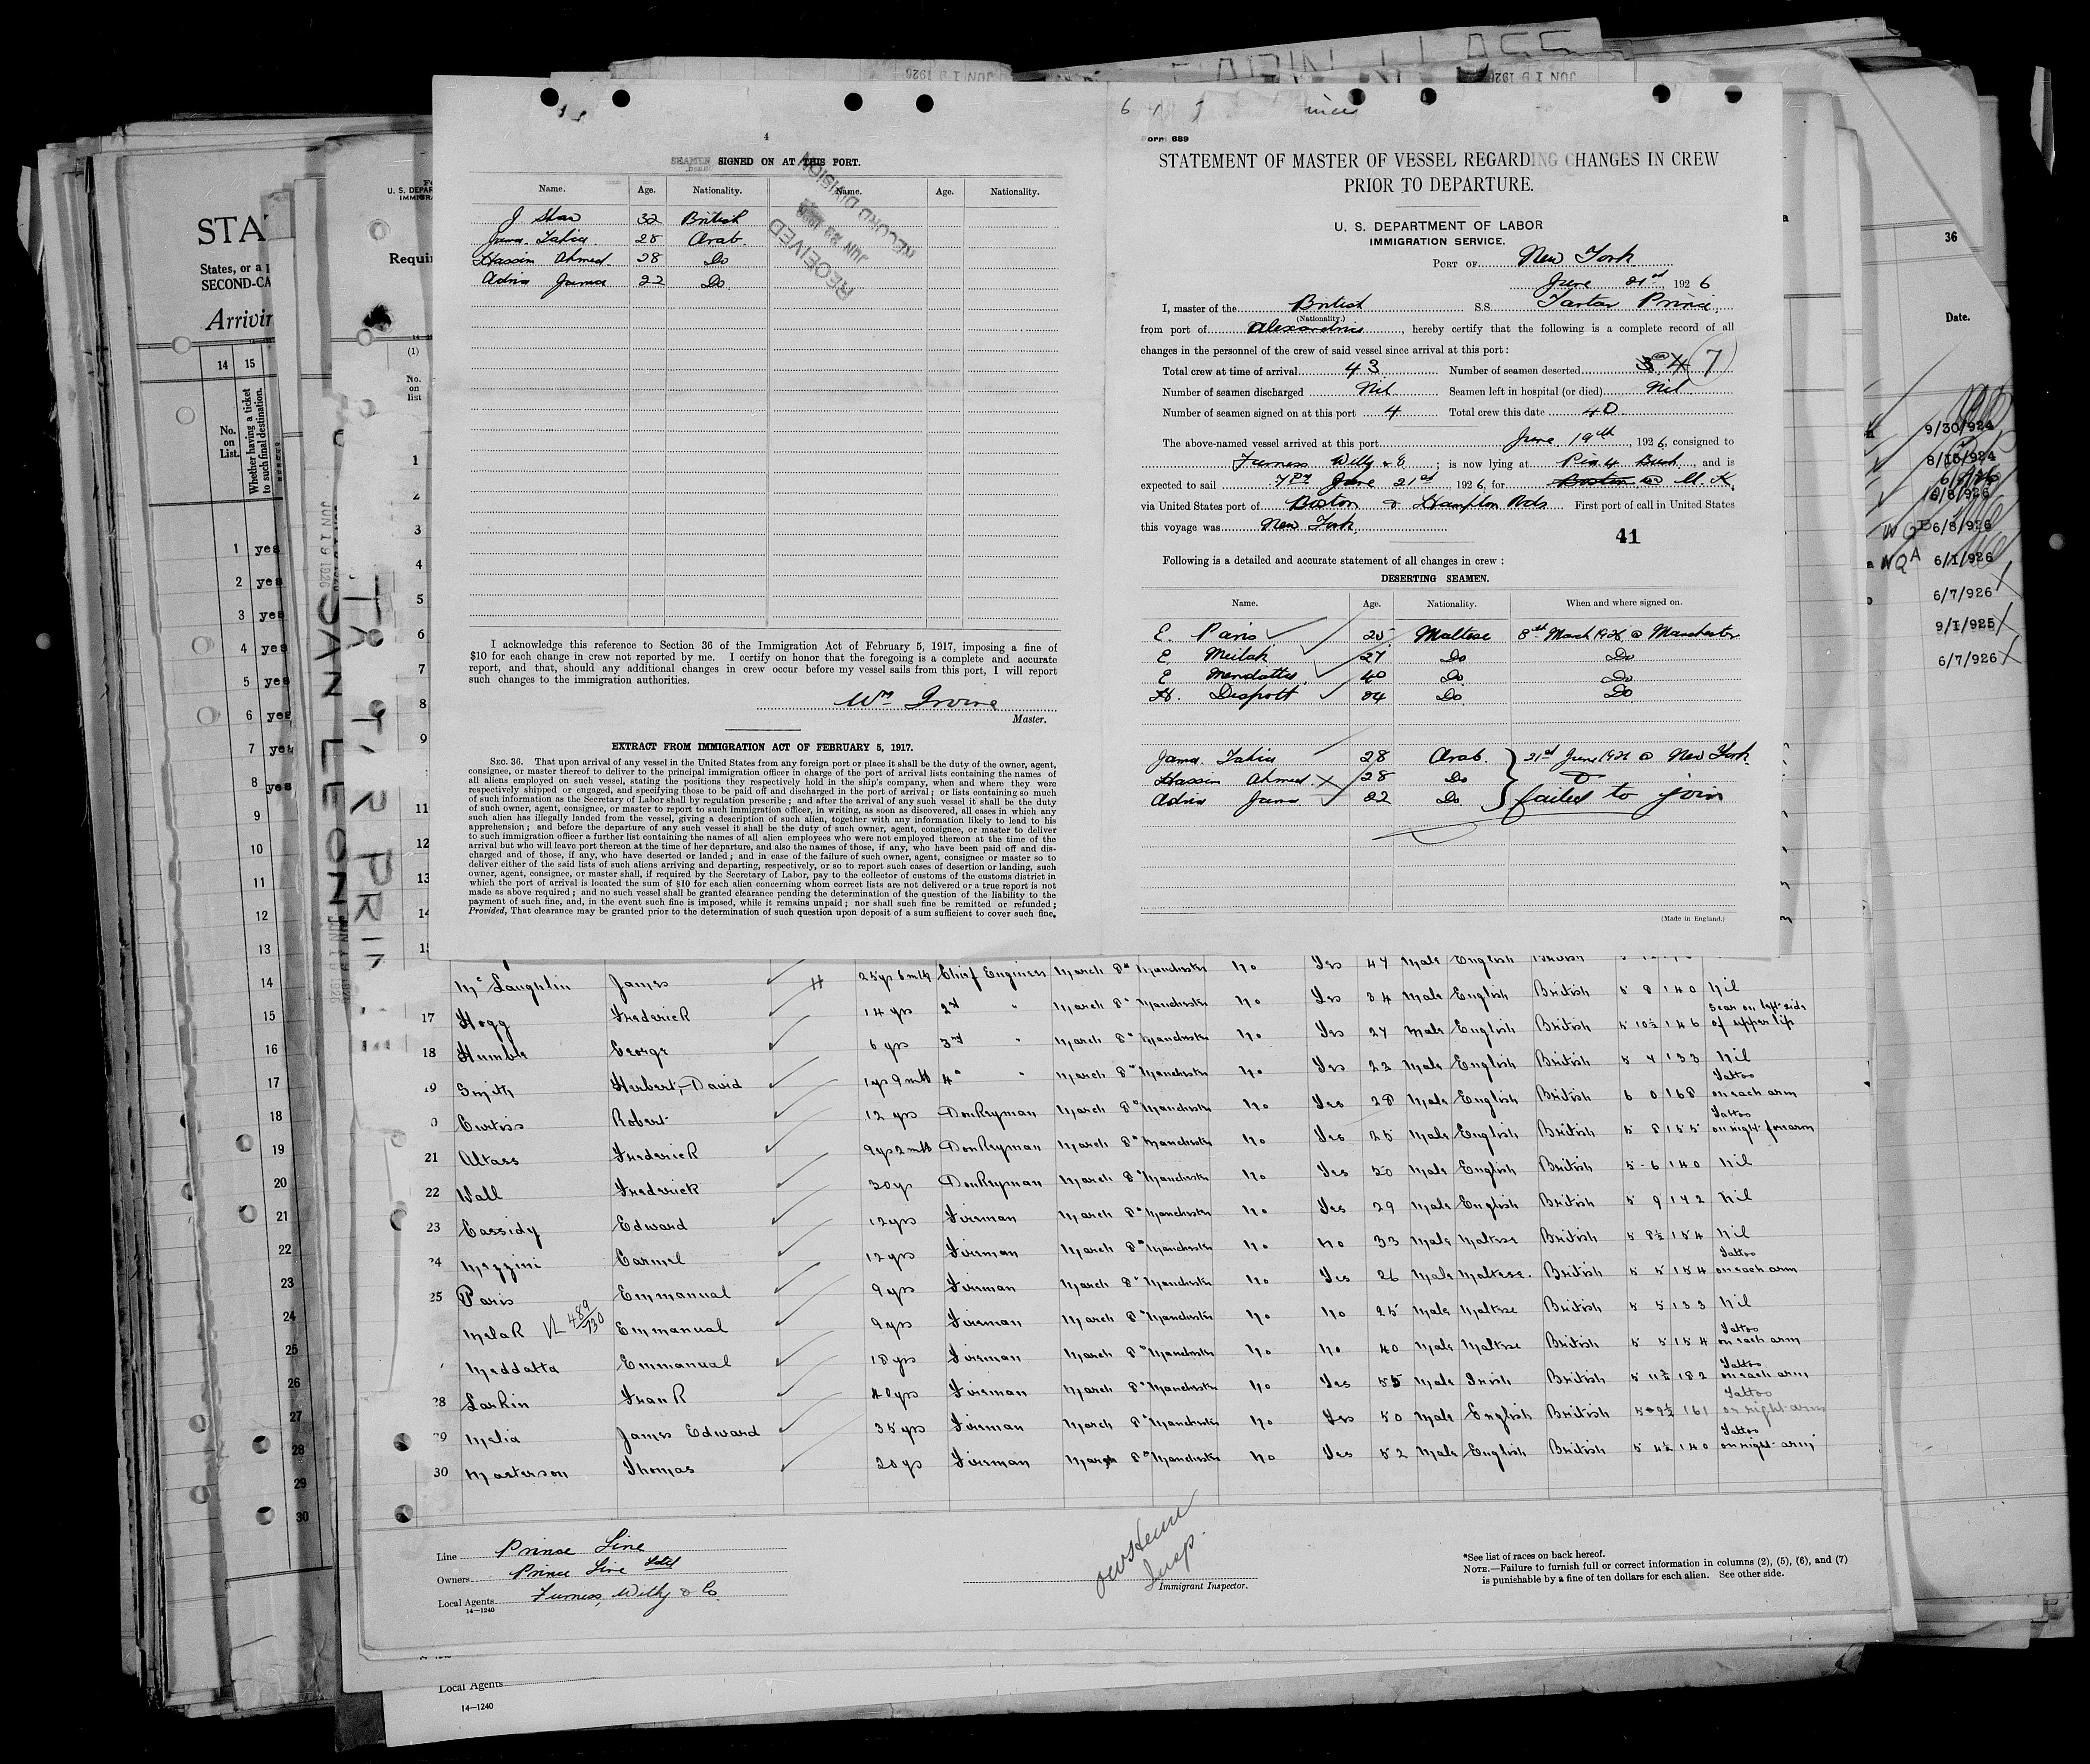 4
SEAMEN SIGNED ON AT THIS PORT.
Name. Age. Nationality. Name. Age. Nationality.
J Shaw 32 British
Jama Tahia 28 Arab.
Hassin Ahmed. 28 Do
Adrio Jama 22 Do.
RECEIVED
JUN 23 1926
RECORD DIVISION
I acknowledge this reference to Section 36 of the Immigration Act of February 5, 1917, imposing a fine of
$10 for each change in crew not reported by me. I certify on honor that the foregoing is a complete and accurate
report, and that, should any additional changes in crew occur before my vessel sails from this port, I will report
such changes to the immigration authorities.
Wm Irvine
Master.
EXTRACT FROM IMMIGRATION ACT OF FEBRUARY 5, 1917.
SEC. 36. That upon arrival of any vessel in the United States from any foreign port or place it shall be the duty of the owner, agent,
consignee, or master thereof to deliver to the principal immigration officer in charge of the port of arrival lists containing the names of
all aliens employed on such vessel, stating the positions they respectively hold in the ship's company, when and where they were
respectively shipped or engaged, and specifying those to be paid off and discharged in the port of arrival; or lists containing so much
of such information as the Secretary of Labor shall by regulation prescribe; and after the arrival of any such vessel it shall be the duty
of such owner, agent, consignee, or master to report to such immigration officer, in writing, as soon as discovered, all cases in which any
such alien has illegally landed from the vessel, giving a description of such alien, together with any information likely to lead to his
apprehension; and before the departure of any such vessel it shall be the duty of such owner, agent, consignee, or master to deliver
to such immigration officer a further list containing the names of all alien employees who were not employed thereon at the time of the
arrival but who will leave port thereon at the time of her departure, and also the names of those, if any, who have been paid off and dis-
charged and of those, if any, who have deserted or landed; and in case of the failure of such owner, agent, consignee or master so to
deliver either of the said lists of such aliens arriving and departing, respectively, or so to report such cases of desertion or landing, such
owner, agent, consignee, or master shall, if required by the Secretary of Labor, pay to the collector of customs of the customs district in
which the port of arrival is located the sum of $10 for each alien concerning whom correct lists are not delivered or a true report is not
made as above required; and no such vessel shall be granted clearance pending the determination of the question of the liability to the
payment of such fine, and, in the event such fine is imposed, while it remains unpaid; nor shall such fine be remitted or refunded;
Provided, That clearance may be granted prior to the determination of such question upon deposit of a sum sufficient to cover such fine.
Form 689
STATEMENT OF MASTER OF VESSEL REGARDING CHANGES IN CREW
PRIOR TO DEPARTURE.
U. S. DEPARTMENT OF LABOR
IMMIGRATION SERVICE.
PORT OF New York
June 21st, 1926
I, master of the British S.S. Tartar Prince,
(Nationality.)
from port of Alexandria, hereby certify that the following is a complete record of all
changes in the personnel of the crew of said vessel since arrival at this port:
Total crew at time of arrival 43 Number of seamen deserted 3 4 7
Number of seamen discharged Nil Seamen left in hospital (or died) Nil.
Number of seamen signed on at this port 4 Total crew this date 40
The above-named vessel arrived at this port June 19th, 1926, consigned to
Furness Withy & Co; is now lying at Pier 4 Bush, and is
expected to sail 7 PM June 21st, 1926, for Boston U.K.
via United States port of Boston & Hampton Rds First port of call in United States
this voyage was New York.
41
Following is a detailed and accurate statement of all changes in crew:
DESERTING SEAMEN.
Name. Age. Nationality. When and where signed on.
E. Paris 25 Maltese 8th March 1926 @ Manchester
E. Meilak 27 Do Do
E Mendatta 40 Do Do
H. Despott 24 Do. Do.
Jama Tahia 28 Arab. 21st June 1926 @ New York
Hassin Ahmed. X 28 Do
Adrio Jama 22 Do failed to join
(Made in England.)
STA
States, or a
SECOND-CA
Arrivin
14 15
No. on List.
Whether having a ticket to such final destination.
1 yes
2 yes
3 yes
4 yes
5 yes
6 yes
7 yes
8 yes
9
10
11
12
13
14
15
16
17
18
19
20
21
22
23
24
25
26
27
28
29
30
JUN 19 1926
SAN LEON
U. S. DEPAR
IMMIGRA
Requir
(1)
No. on list
1
2
3
4
5
6
7
8
9
11
12
13
14
36
Date.
9/30/924
8/15/924
6/8/926
6/8/926
6/1/926
6/7/926
9/1/925
6/7/926
McLaughlin James 25yrs 6mths Chief Engineer March 8" Manchester No Yes 47 Male English British
17 Hogg Frederick 14 yrs 2nd " March 8" Manchester No Yes 34 Male English British 5 8 140 Nil
18 Humble George 6 yrs 3rd " March 8" Manchester No Yes 27 Male English British 5 10½ 146 Scar on left side of upper lip
19 Smith Herbert, David 1yr 9mth 4" " March 8" Manchester No Yes 22 Male English British 5 7 133 Nil
Curtiss Robert 12 yrs Donkeyman March 8" Manchester No Yes 28 Male English British 6 0 168 Tattoo on each arm
21 Altass Frederick 9yrs 2mth Donkeyman March 8" Manchester No Yes 25 Male English British 5 8 155 Tattoo on right forearm
22 Wall Frederick 30yrs Donkeyman March 8" Manchester No Yes 50 Male English British 5-6 140 Nil
23 Cassidy Edward 12yrs Fireman March 8" Manchester No Yes 29 Male English British 5 9 142 Nil
24 Mezzini Carmel 12yrs Fireman March 8" Manchester No No 33 Male Maltese British 5 8½ 154 Nil
25 Paris Emmanual 9yrs Fireman March 8" Manchester No Yes 26 Male Maltese. British 5 5 154 Tattoo on each arm
Melak VL 489/730 Emmanual 9yrs Fireman March 8" Manchester No No 25 Male Maltese British 5 5 133 Nil
Meddatta Emmanual 18 yrs Fireman March 8" Manchester No No 40 Male Maltese British 5 5 154 Tattoo on each arm
28 Larkin Frank 40yrs Fireman March 8" Manchester No Yes 55 Male Irish British 5 11½ 182 Tattoo on each arm
29 Melia James Edward 35yrs Fireman March 8" Manchester No Yes 50 Male English British 5 9½ 161 Tattoo on right arm
30 Masterson Thomas 20yrs Fireman March 8" Manchester No Yes 52 Male English British 5 4½ 140 Tattoo on right arm
Line Prince Line
Owners Prince Line Ltd
Local Agents Furness, Withy & Co
14—1240
Insp.
Immigrant Inspector.
*See list of races on back hereof.
NOTE.—Failure to furnish full or correct information in columns (2), (5), (6), and (7)
is punishable by a fine of ten dollars for each alien. See other side.
Local Agents
14—1240